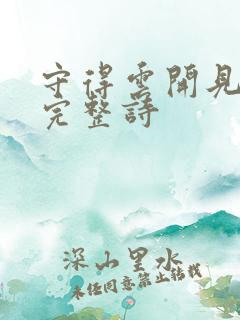 守得雲開見
完整詩
深山里水
未任同意禁止转载